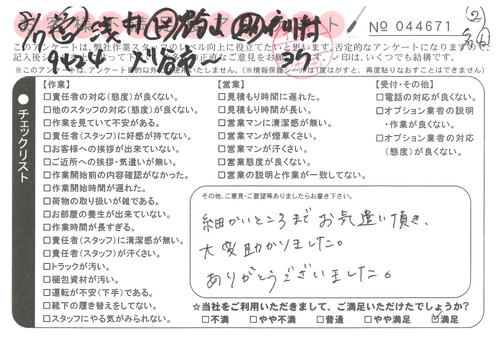 No 044671
②
このアンケートは、弊社作業スタッフのレベル向上に役立てたいと思います。否定的なアンケートになりますので、
※このアンケートは、
※チェックリスト
【作業】
□責任者の対応(態度)が良くない。
□他のスタッフの対応(態度)が良くない。
□作業を見ていて不安がある。
□責任者(スタッフ)に好感が持てない。
□お客様への挨拶が出来ていない。
□ご近所への挨拶・気遣いが無い。
□作業開始前の内容確認がなかった。
□作業開始時間が遅れた。
□荷物の取り扱いが雑である。
□お部屋の養生が出来ていない。
□作業時間が長すぎる。
□責任者(スタッフ)に清潔感が無い。
□責任者(スタッフ)が汗くさい。
□トラックが汚い。
□梱包資材が汚い。
□運転が不安(下手)である。
□靴下の履き替えをしてない。
□スタッフにやる気がみられない。
【営業】
□見積もり時間に遅れた。
□見積もり時間が長い。
□営業マンに清潔感が無い。
□営業マンが煙草くさい。
□営業マンが汗くさい。
□営業態度が良くない。
□営業の説明と作業が一致してない。
【受付・その他】
□電話の対応が良くない。
□オプション業者の説明
・作業が良くない。
□オプション業者の対応
(態度)が良くない。
その他、ご意見・ご要望等ありましたらお書き下さい。
細かいところまでお気遣い頂き、
大変助かりました。
ありがとうございました。
☆当社をご利用いただきまして、ご満足いただけたでしょうか?
□不満 □やや不満 □普通 □やや満足 ☑満足